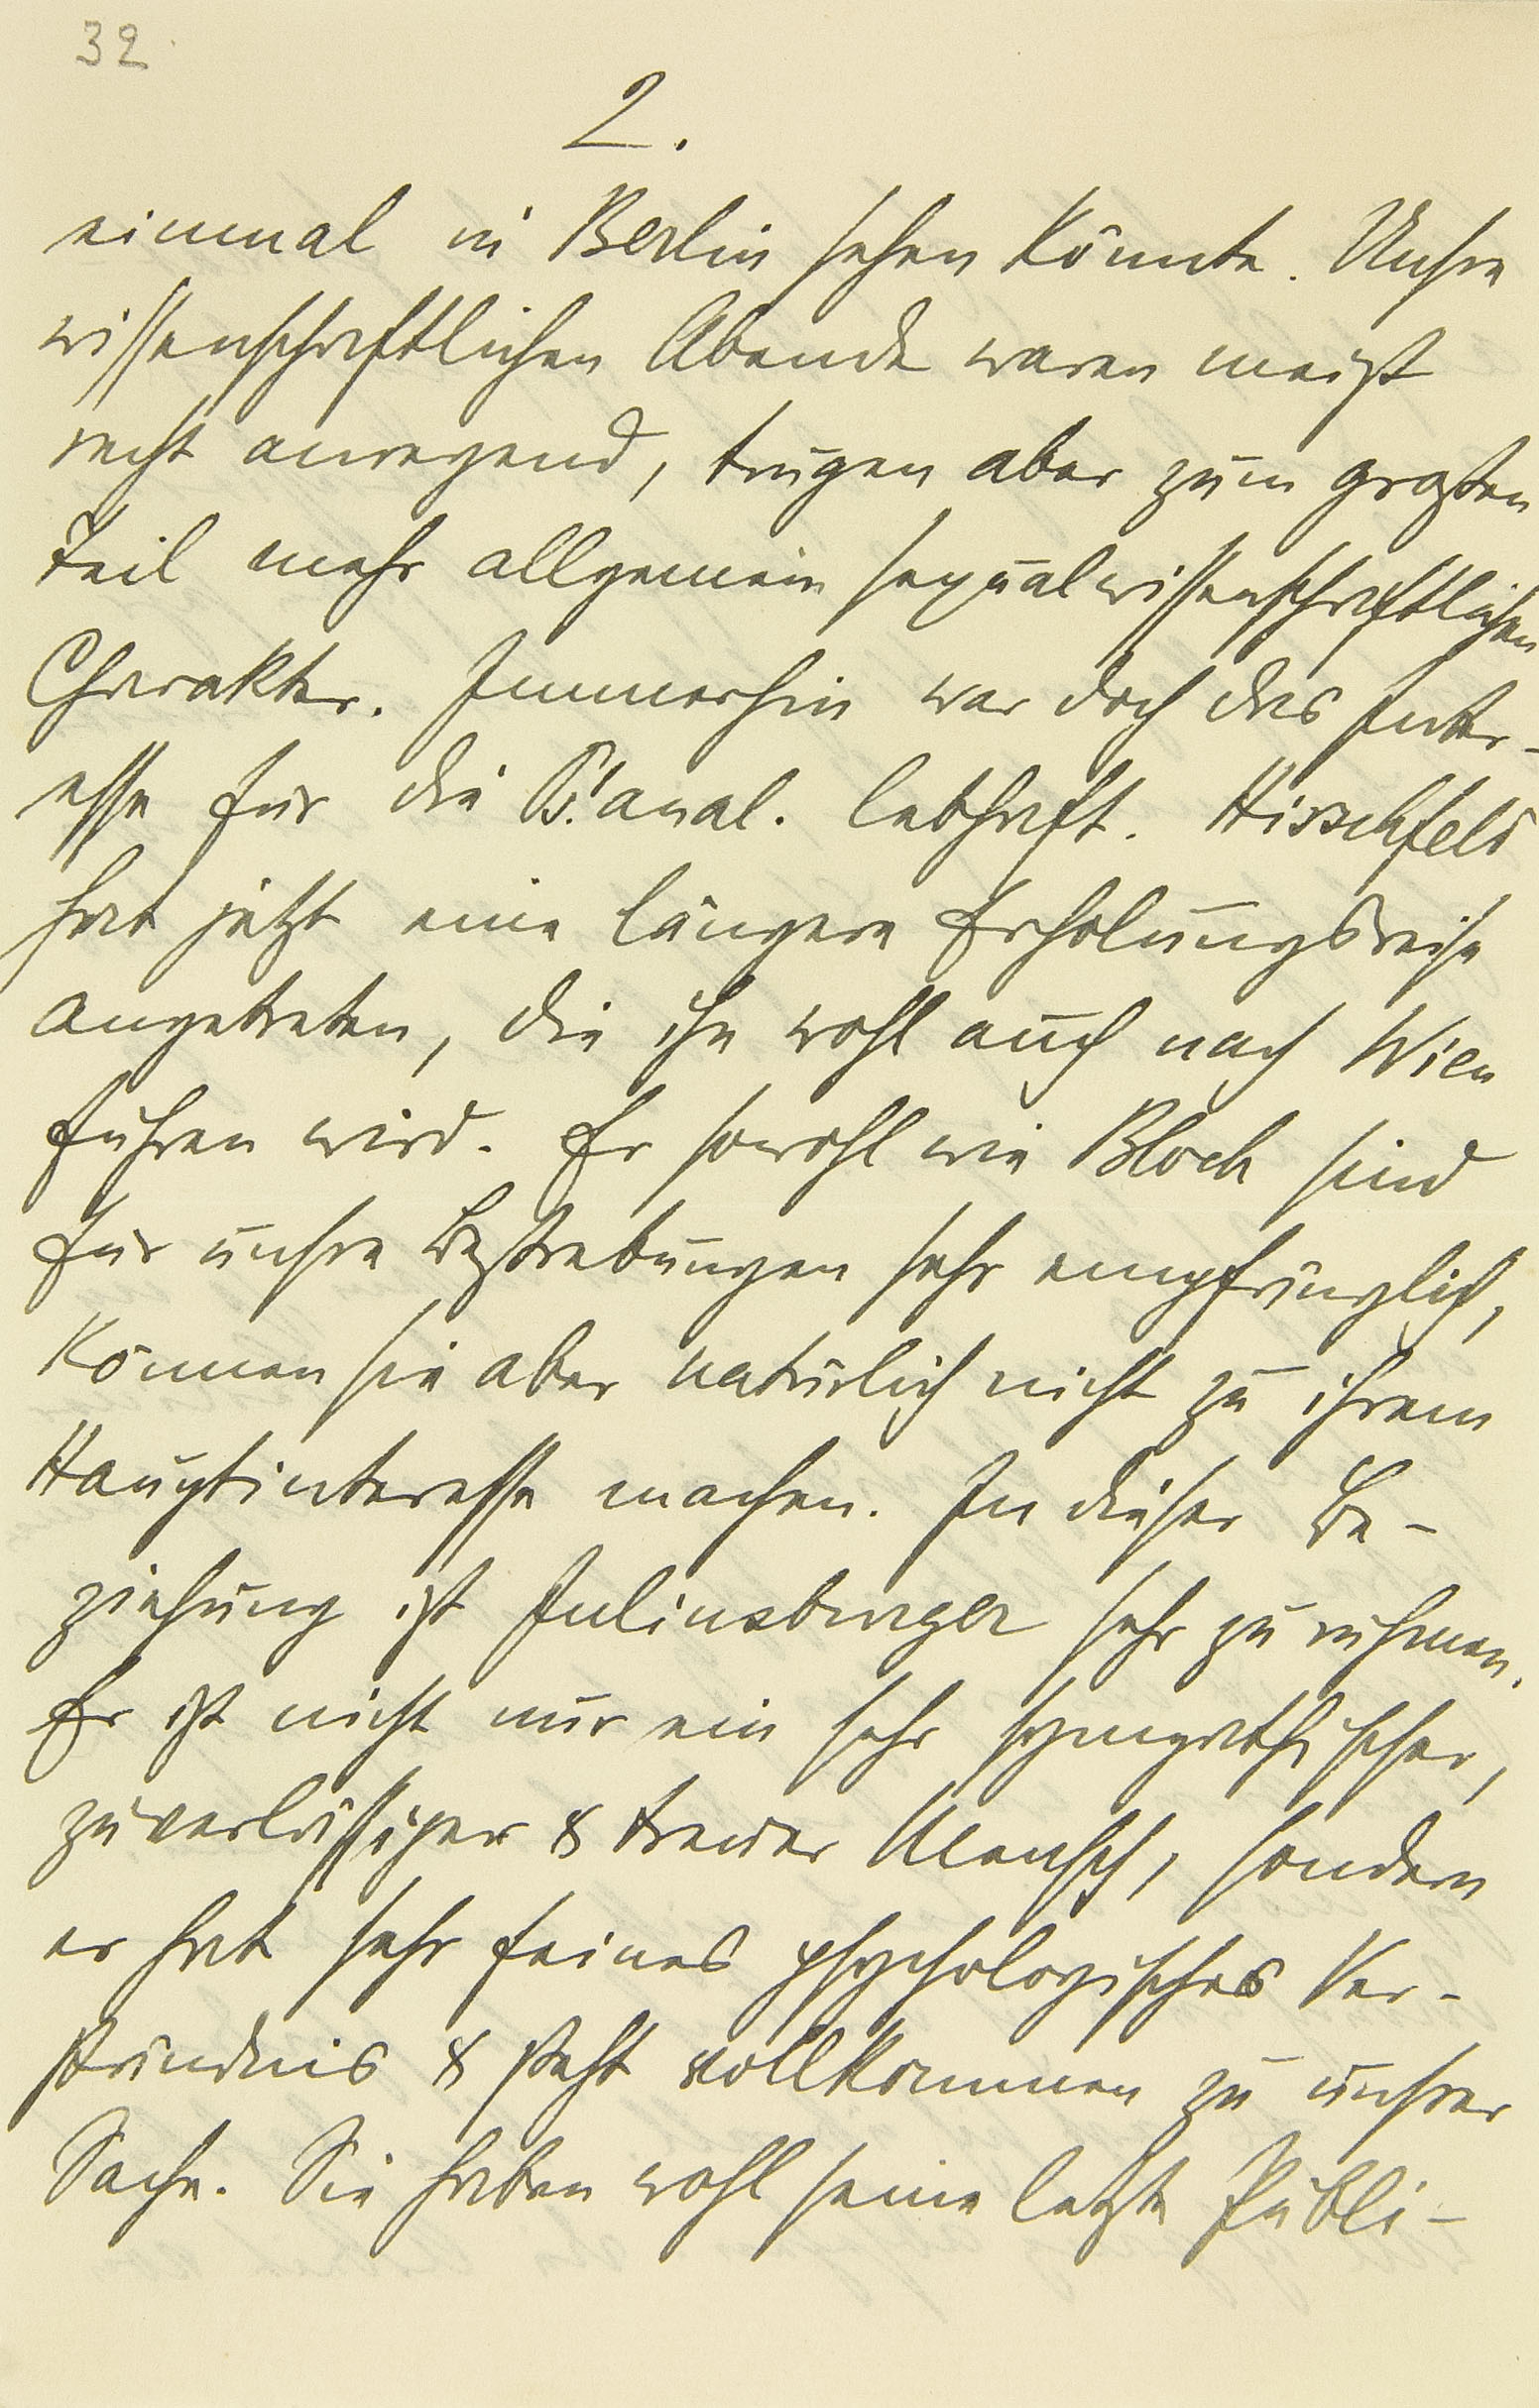 32
2.
einmal in Berlin sehen könnte. Unsre
wissenschaftlichen Abende waren meist
recht anregend, trugen aber zum großten
Teil mehr allgemein sexualwissenschaftlichen
Charakter. Immerhin war doch das Inter-
esse für die Ps.'anal. lebhaft. Hirschfeld
hat jetzt eine längere Erholungsreise
angetreten, die ihn wohl auch nach Wien
führen wird. Er sowohl wie Bloch sind
für unsre Bestrebungen sehr empfänglich,
können sie aber natürlich nicht zu ihrem
Hauptinteresse machen. In dieser Be-
ziehung ist Juliusburger sehr zu rühmen.
Er ist nicht nur ein sehr sympathischer,
zuverlässiger & treuer Mensch, sondern
er hat sehr feines psychologisches Ver-
ständnis & steht vollkommen zu unsrer
Sache. Sie haben wohl seine letzte Publi-